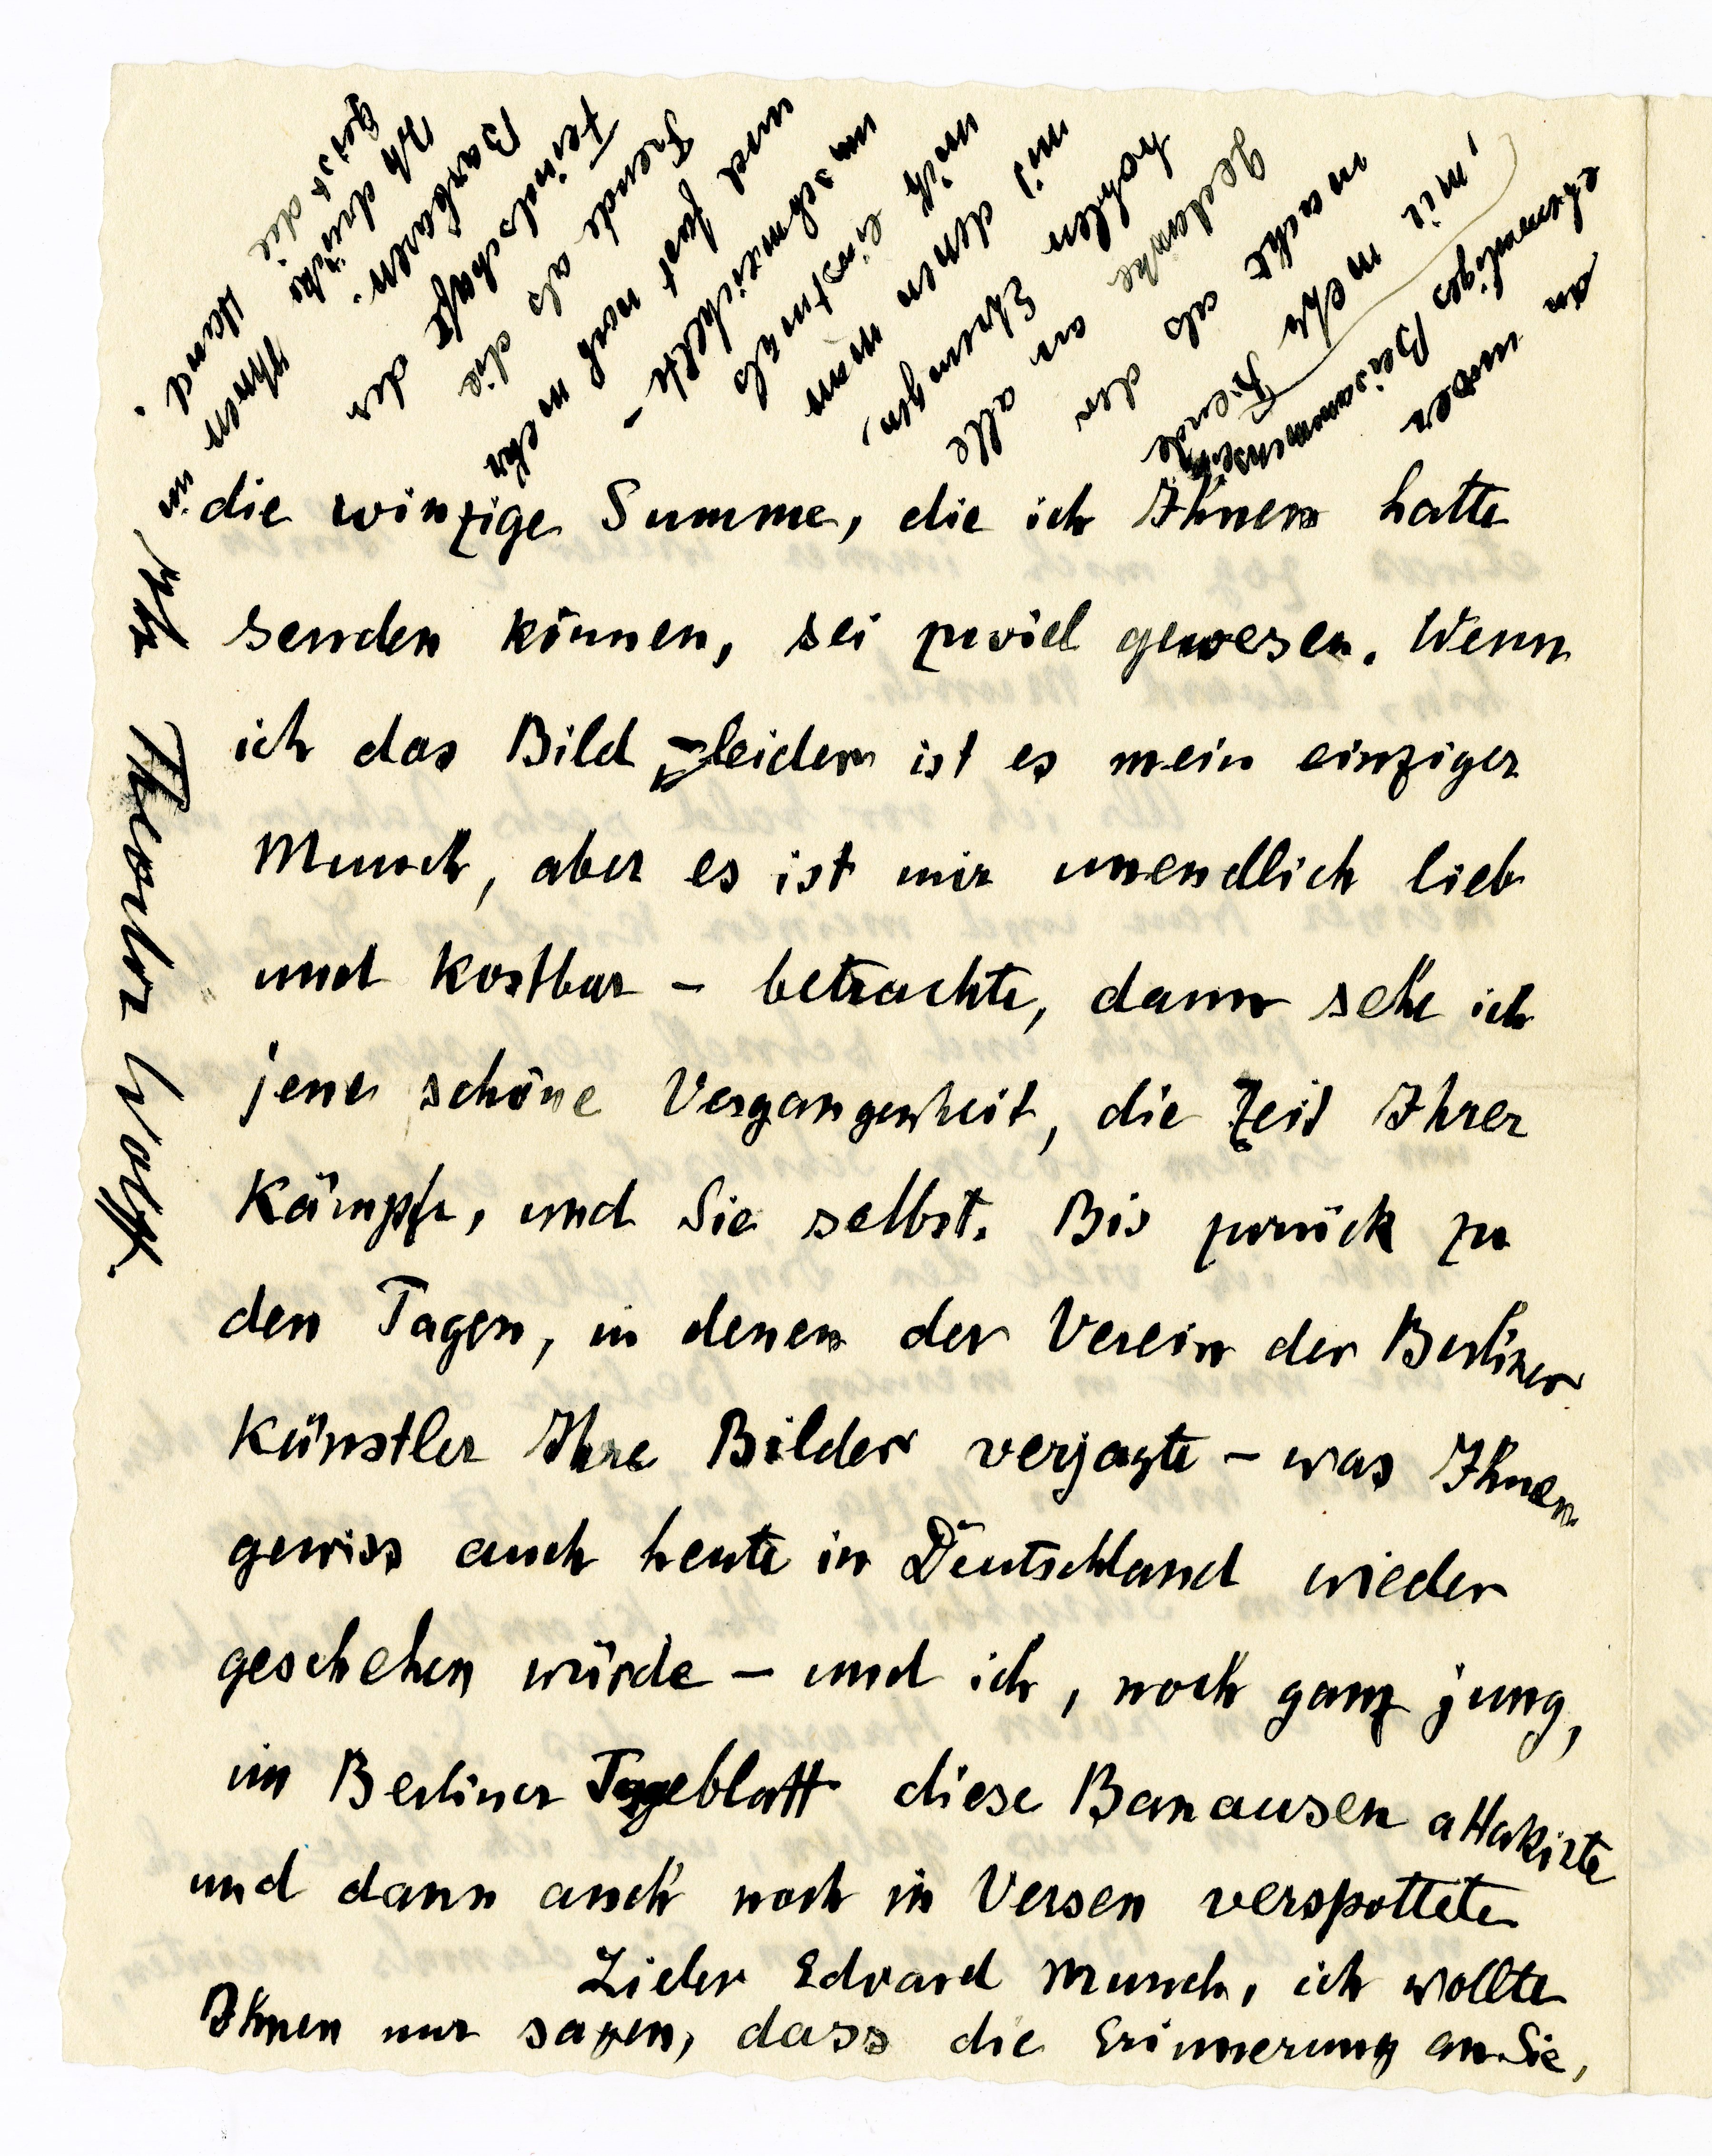 die winzige Summe, die ich Ihnen hatte
senden können, sei zuviel gewesen. Wenn
ich das Bild – leider ist es mein einziger
Munch, aber es ist mir unendlich lieb
und kostbar – betrachte, dann sehe ich
jene schöne Vergangenheit, die Zeit Ihrer
Kämpfe, und Sie selbst. Bis zurück zu
den Tagen, in denen der Verein der Berliner
Künstler Ihre Bilder verjagte – was Ihnen
gewiss auch heute in Deutschland wieder
geschehen würde – und ich, noch ganz jung,
im Berliner Tageblatt diese Banausen attakirte
und dann auch noch in Versen verspottete
Lieber Edvard Munch, ich wollte
Ihnen nur sagen, dass die Erinnerung an Sie,
an unser
ehemaliges Beisammensein
, mir mehr Freude
macht als der
Gedanke an alle
hohlen Ehrungen,
mit denen man
mich einstmals
umschmeichelte –
und fast noch mehr
Freude als die
Feindschaft der
Barbaren.
Ich drücke Ihnen im
Geist die Hand.
Ihr Theodor Wolff.